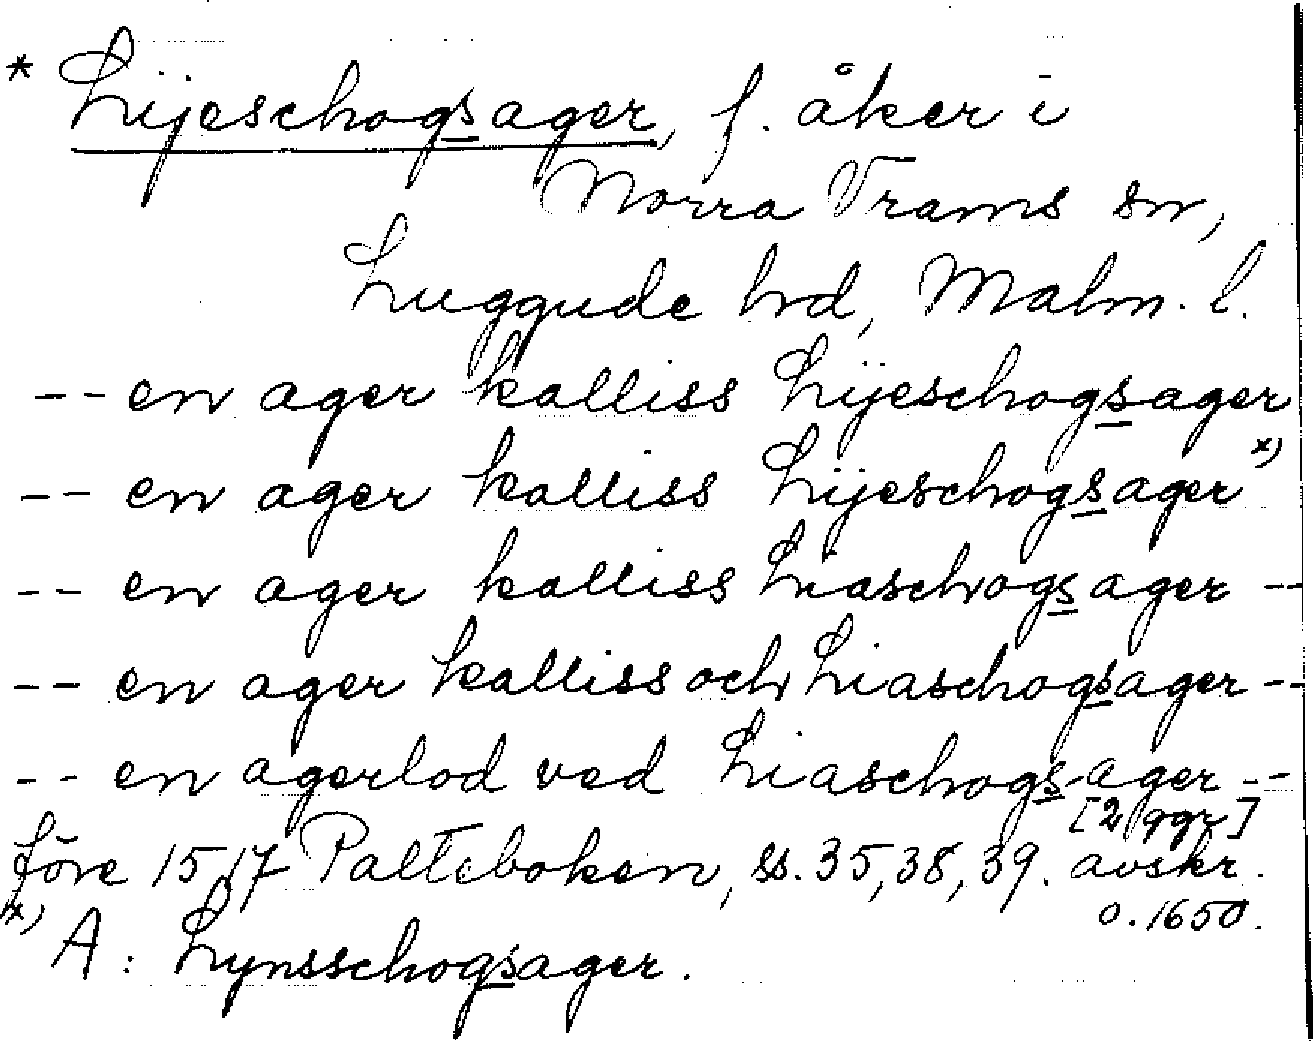 * Lijeschogsager, f. åker i
Norra Vrams sn,
Luggude hd, Malm. l.
-- en ager kalliss Lijeschogsager
-- en ager kalliss Lijeschogsager x)
-- en ager kalliss Liaschogsager --
-- en ager kalliss och Liaschogsager --
-- en agerlod ved Liaschogsager --
[2 ggr]
före 1517 Palteboken, ss. 35, 38, 39. avskr.
o. 1650.
x) A: Lynsschogsager.